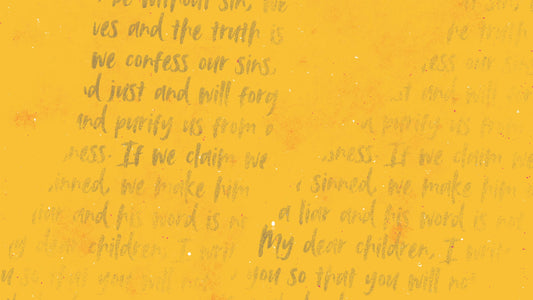 be without sin, we
ves and the truth is
we confess our sins,
d just and will forg
and purify us from
ness. If we claim we
inned, we make him
liar and his word is no
My dear children, I wri
u so that you will no
he truth
ess our sin
t and will for
purify us from
ness. If we claim we
sinned, we make him
a liar and his word is not
My dear children, I write
you so that you will not